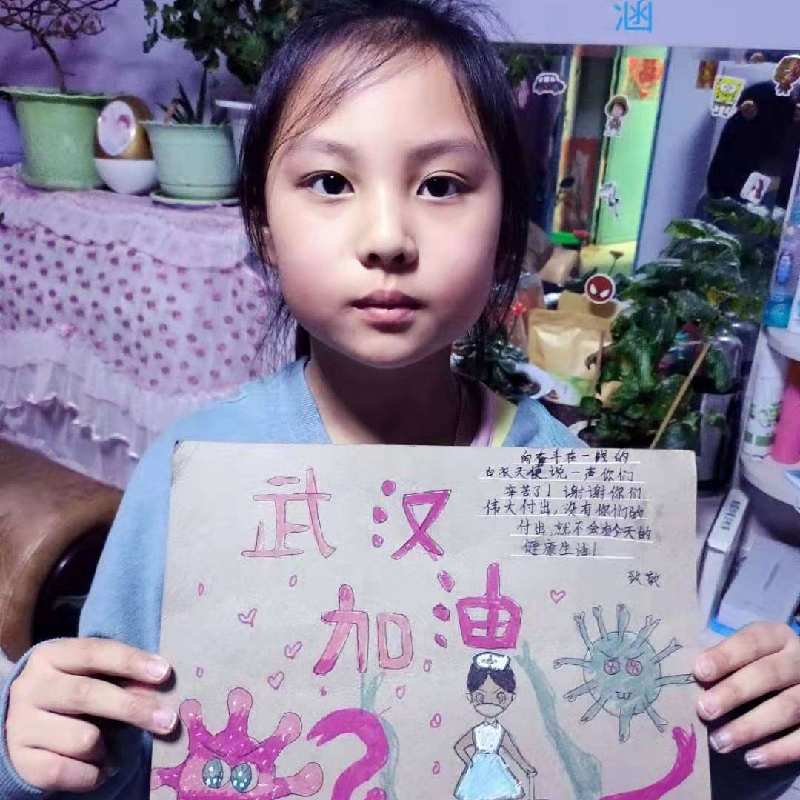 涵
向奋斗在一线的
白衣天使说一声你们
辛苦了！谢谢你们
伟大付出，没有你们的
付出，就不会有今天的
健康生活！
致敬
武汉
加油